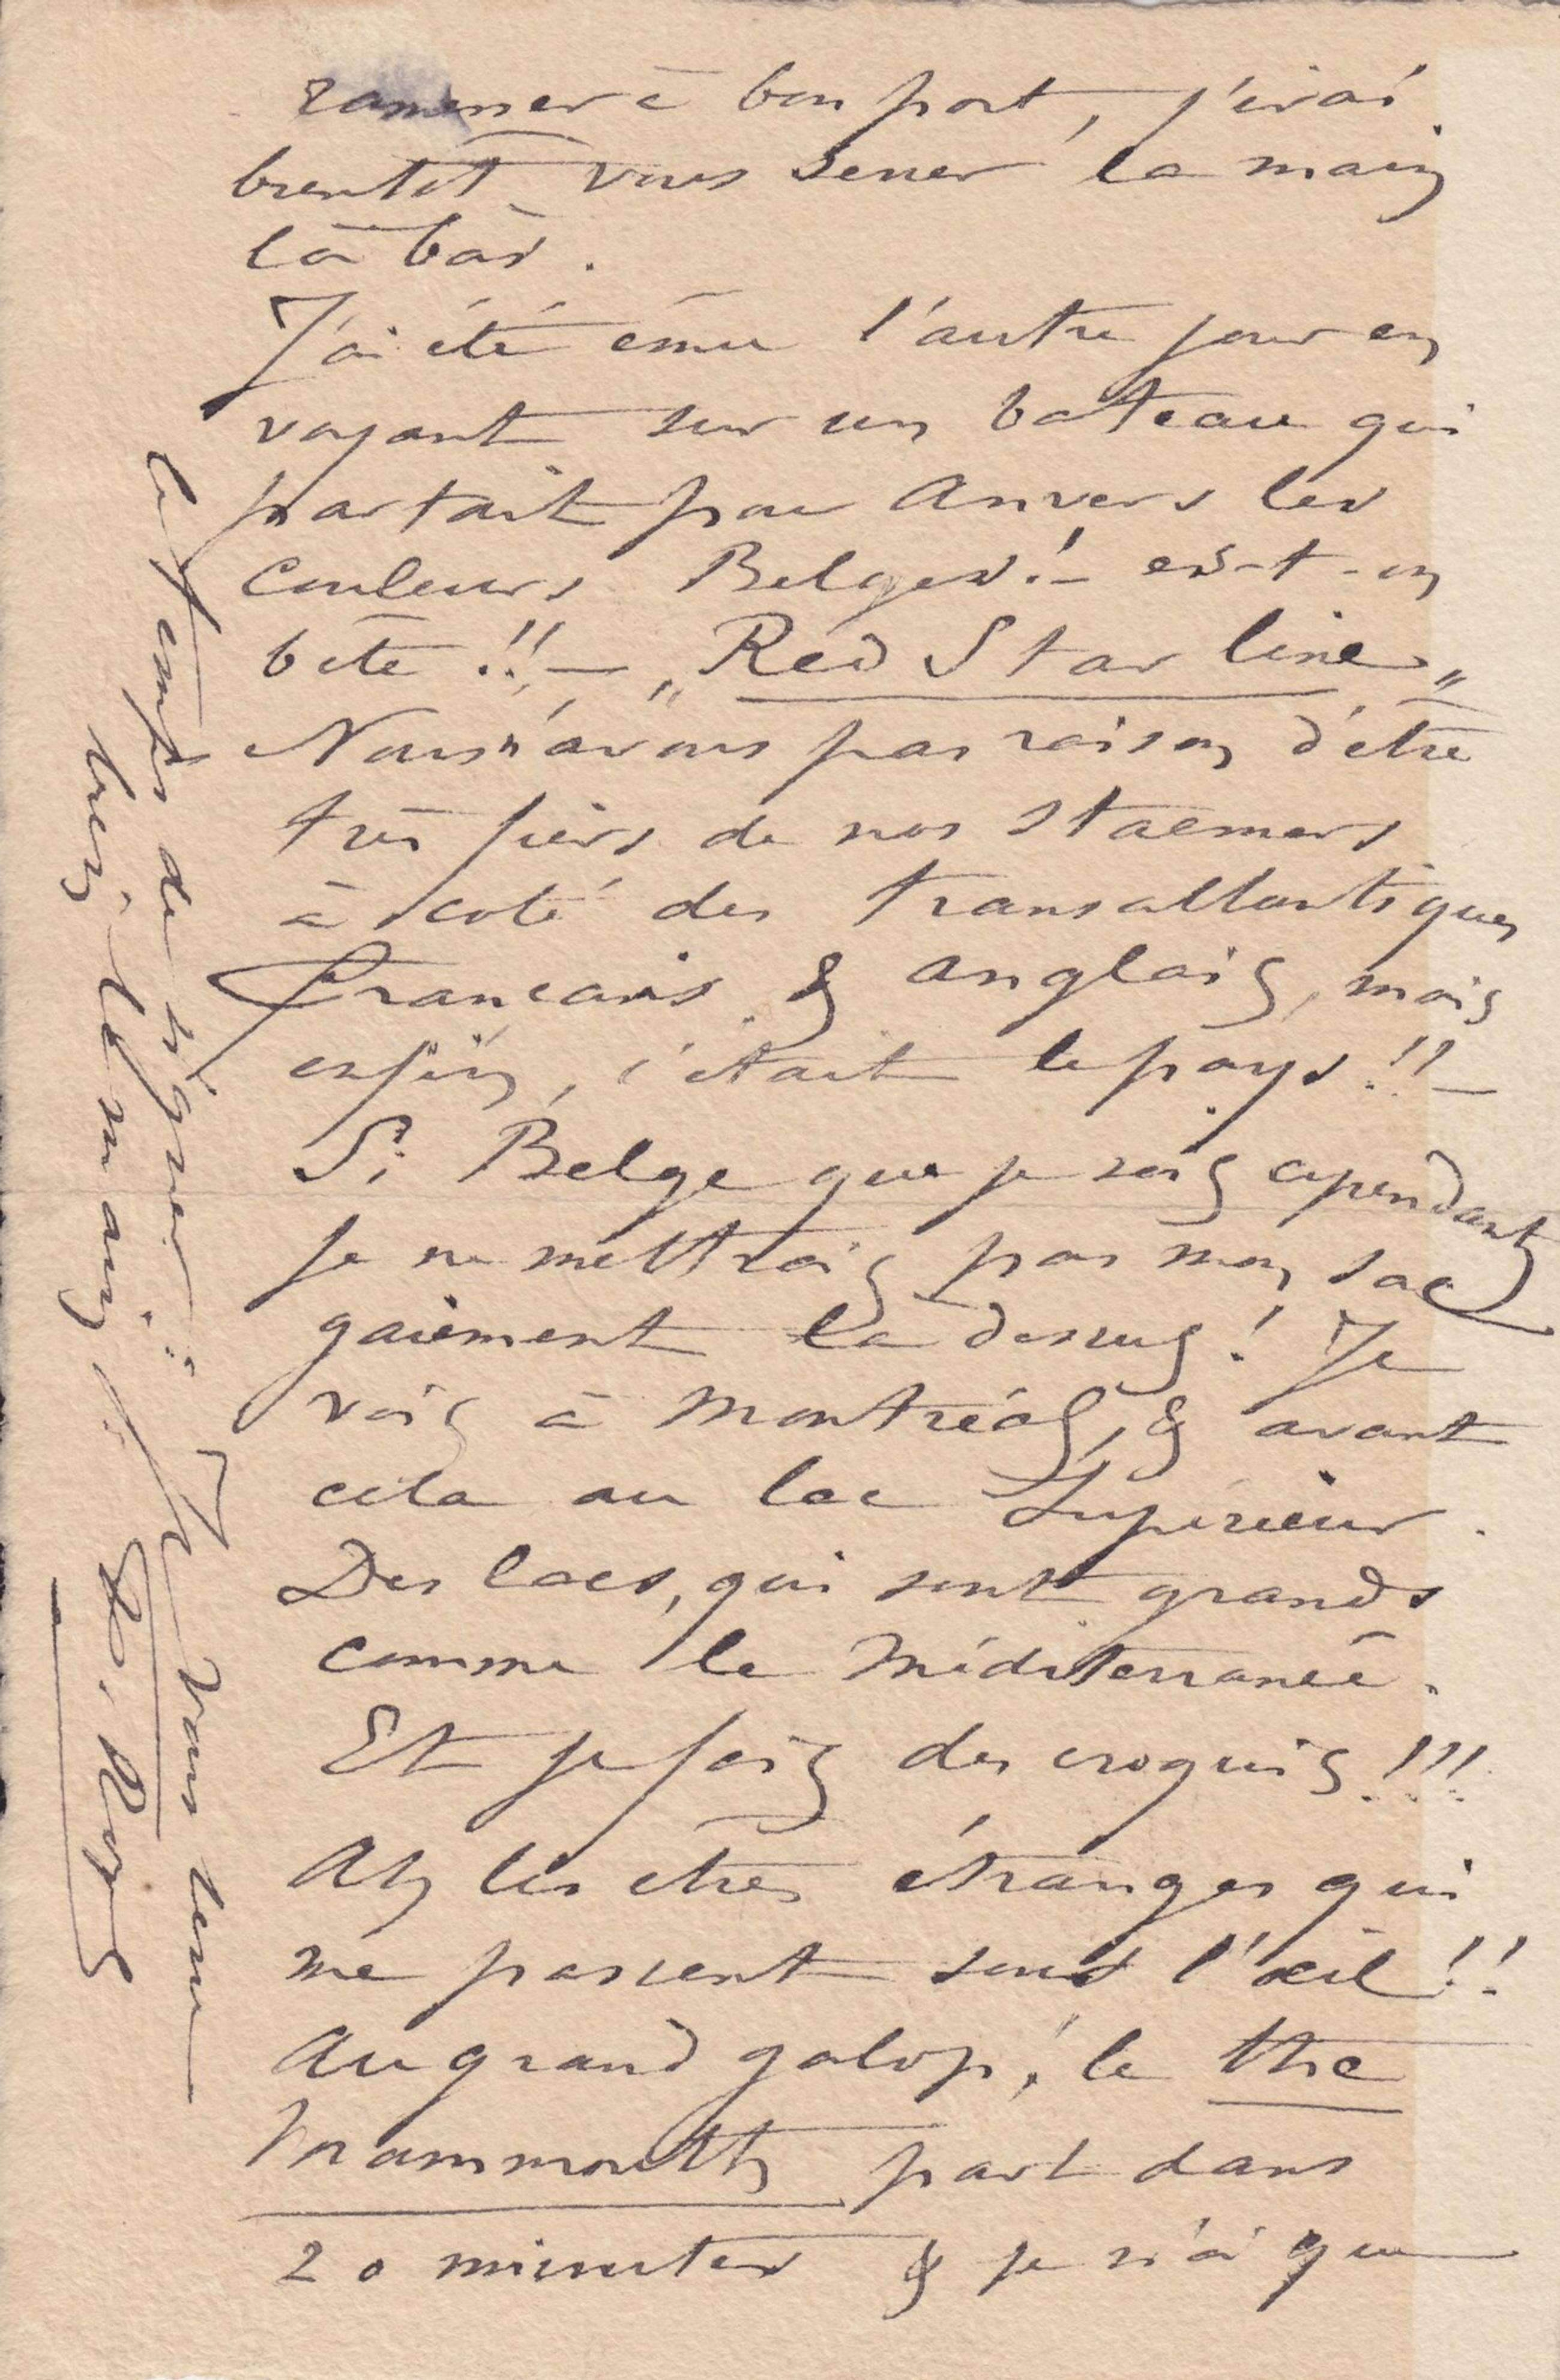 ramener à bon port, j'irai
bientôt vous serrer la main
là bàs.
J'ai été ému l'autre jour en
voyant sur un bateau qui
partait pour Anvers les
couleurs Belges! – es-t-on
bête!! – „Red Star line„
Nous n'avons pas raison d'être
très fiers de nos staemers
à coté des transatlantiques
Français & anglais, mais
enfin, c'était le pays!! –
Si Belge que je sois cependant
je ne mettrais pas mon sac
gaiement la dessus! Je
vais à Montréal, & avant
cela au lac Supérieur.
Des lacs, qui sont grands
comme la Méditerranée.
Et je fais des croquis!!!
Ah les êtres étranges qui
me passent sous l'œil!!
Au grand galop! le the
Mammouth part dans
20 minutes & je n'ai que
le temps de signer: Je vous serre
bien la main
F. Rops